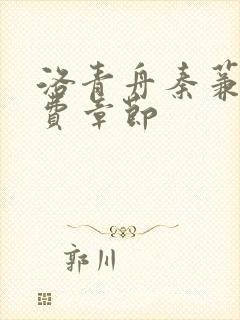 洛青舟秦蒹
費章節
郭川